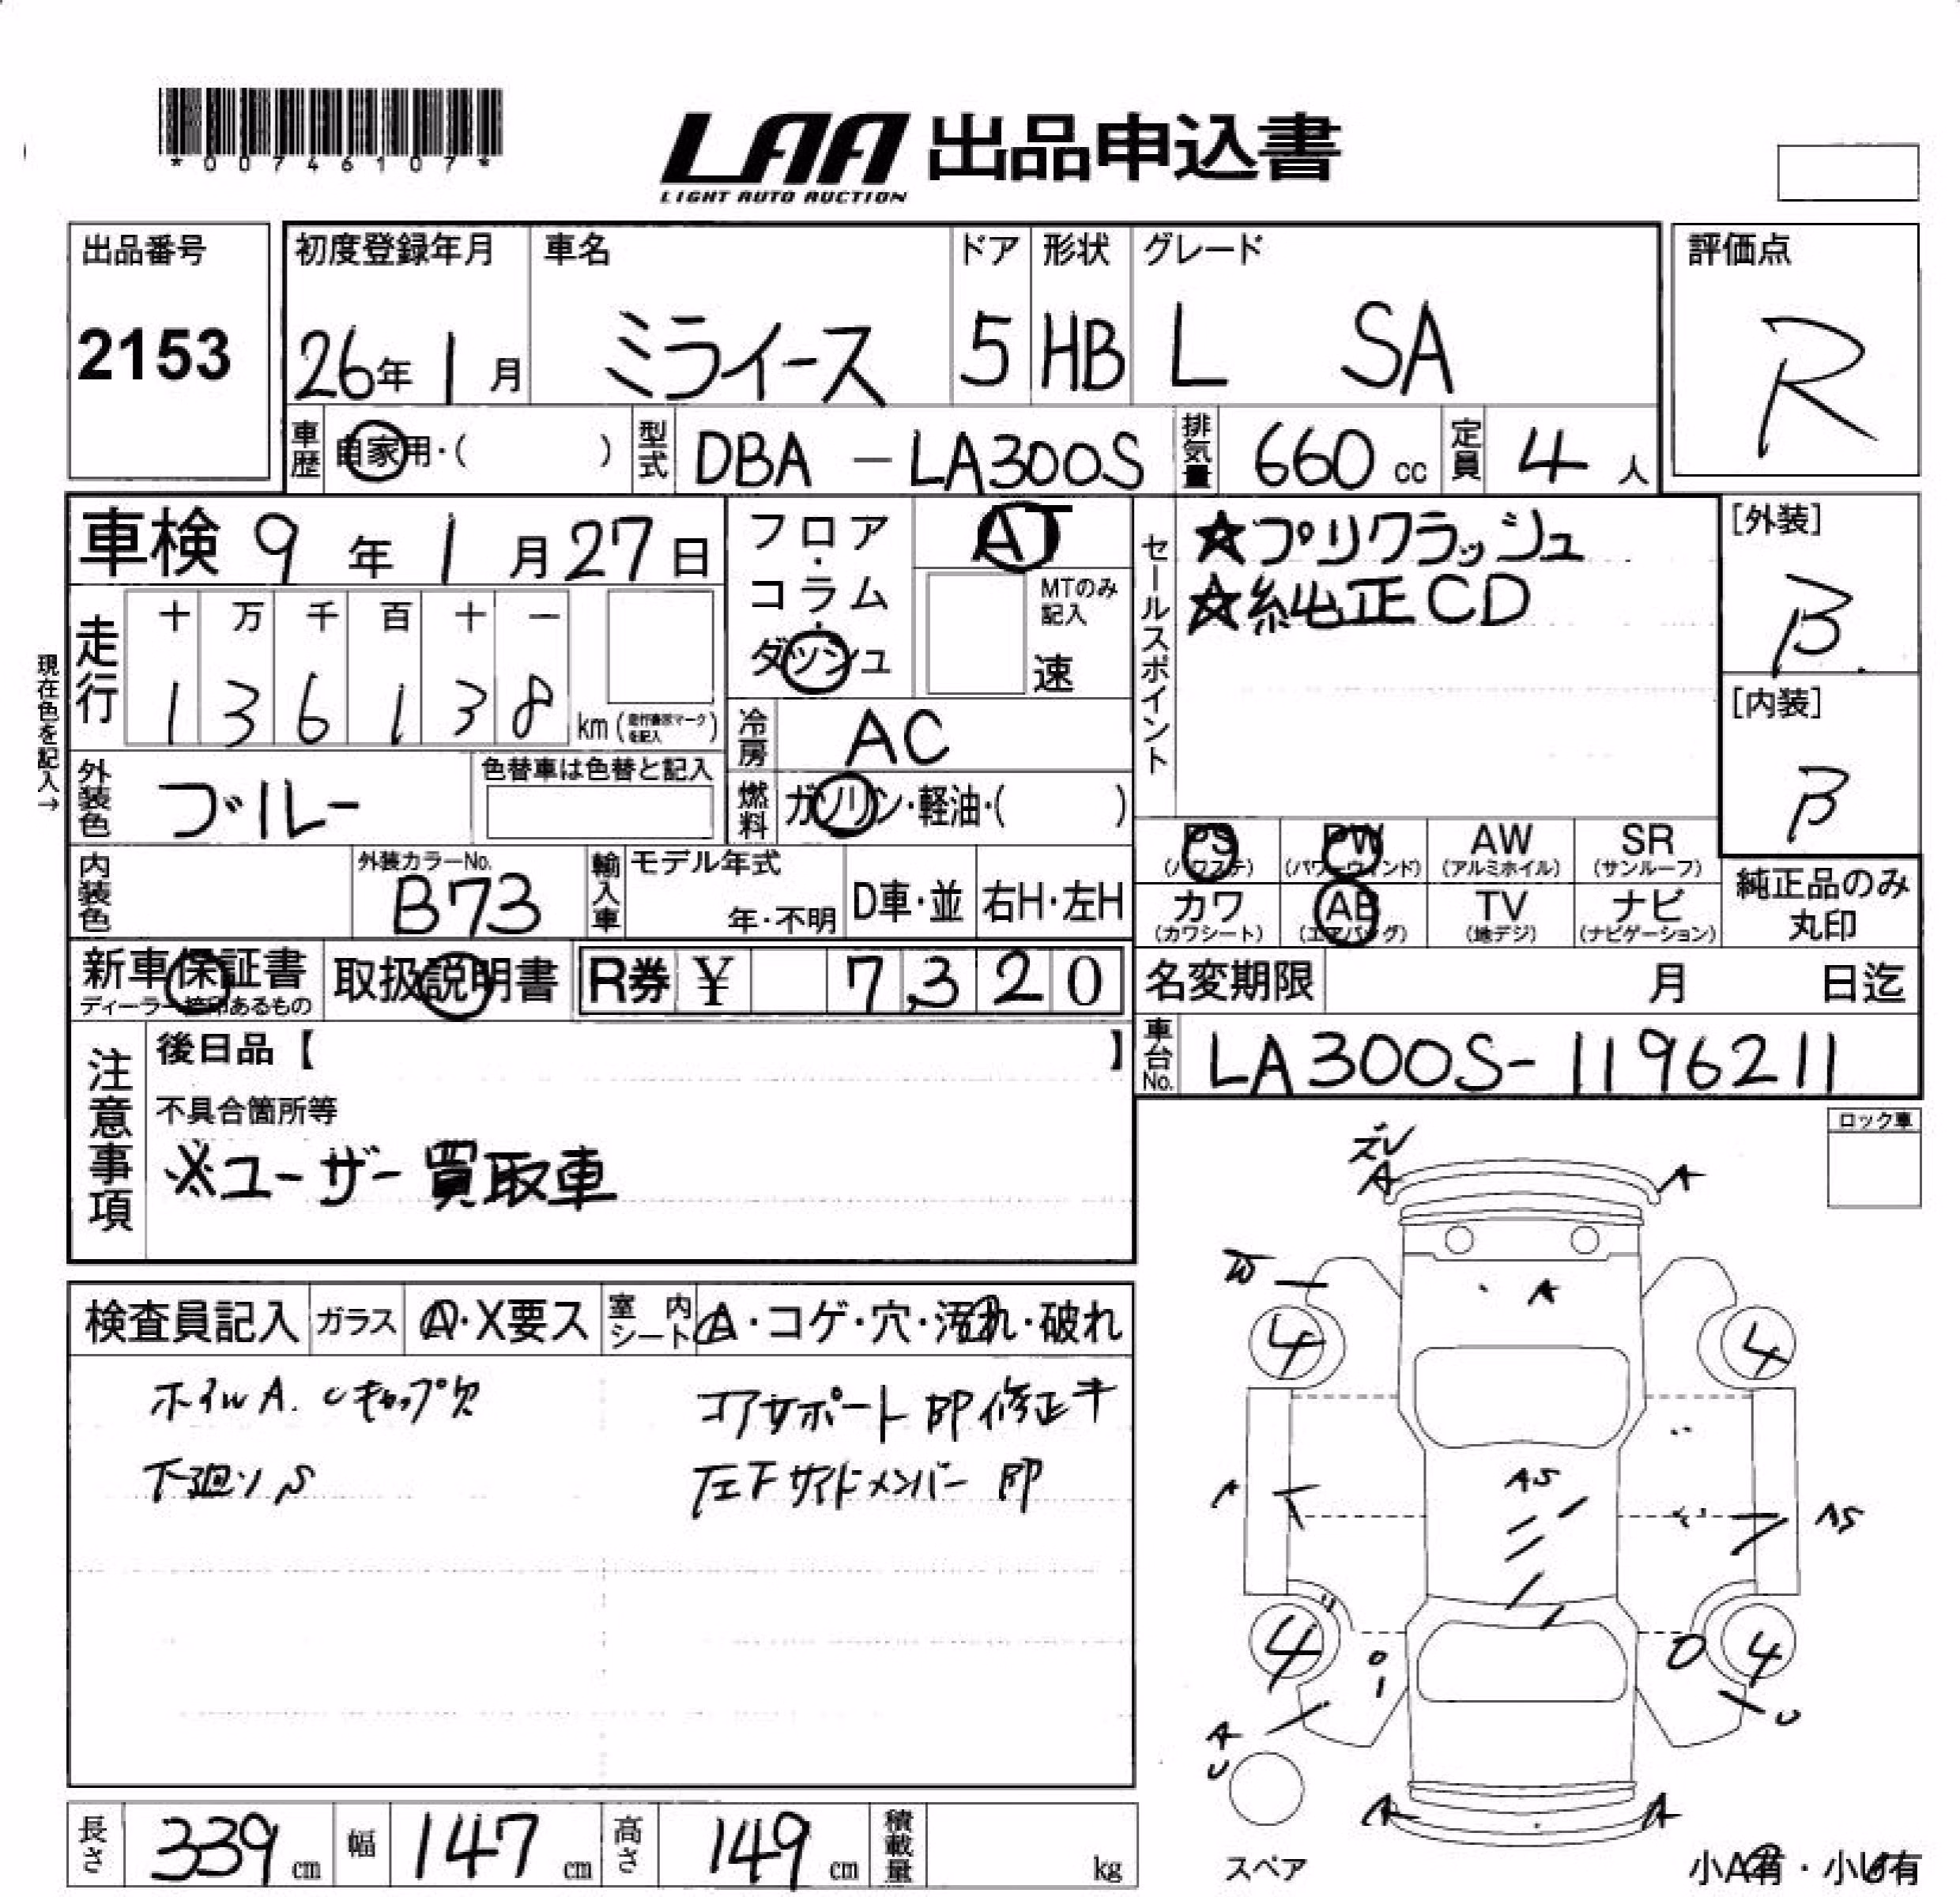 *00746107*
LAA 出品申込書
LIGHT AUTO AUCTION
出品番号
2153
初度登録年月
26年 1月
車名
ミライース
ドア
5
形状
HB
グレード
L SA
評価点
R
車歴 自家用・( )
型式 DBA - LA300S
排気量 660 cc
定員 4 人
車検 9年 1月 27日
フロア・コラム・ダッシュ
AT
MTのみ記入
速
セールスポイント
☆プリクラッシュ
☆純正CD
[外装]
B
[内装]
B
現在色を記入→
走行
十 万 千 百 十 一
1 3 6 1 3 8
km (走行表示マークを記入)
冷房 AC
外装色 ブルー
色替車は色替と記入
燃料 ガソリン・軽油・( )
PS (パワステ)
PW (パワーウィンド)
AW (アルミホイル)
SR (サンルーフ)
カワ (カワシート)
AB (エアバッグ)
TV (地デジ)
ナビ (ナビゲーション)
純正品のみ丸印
内装色
外装カラーNo.
B73
輸入車
モデル年式
年・不明
D車・並
右H・左H
新車保証書
ディーラー捺印あるもの
取扱説明書
R券 ¥ 7,320
名変期限 月 日迄
車台No. LA300S-1196211
注意事項
後日品【 】
不具合箇所等
※ユーザー買取車
ロック車
検査員記入
ガラス A・X要ス
室内シート A・コゲ・穴・汚れ・破れ
ホイルA. Cキャップ欠
コアサポート 即修正キ
下廻りS
左Fサイドメンバー 即
ズレ
A
A
W
A
4
4
A
AS
AS
4
4
A
U
U
A
A
スペア
小A有・小U有
長さ 339 cm
幅 147 cm
高さ 149 cm
積載量 kg